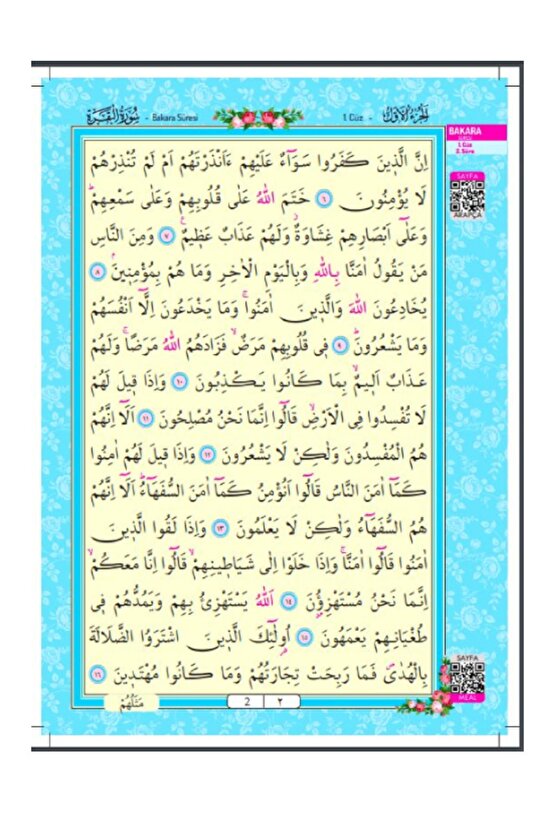 سُورَةُ الْبَقَرَةِ - Bakara Sûresi
1. Cüz - اَلْجُزْءُ الْاَوَّلُ
BAKARA
1. Cüz
2. Sûre
SAYFA
ARAPÇA
اِنَّ الَّذ۪ينَ كَفَرُوا سَوَٓاءٌ عَلَيْهِمْ ءَاَنْذَرْتَهُمْ اَمْ لَمْ تُنْذِرْهُمْ
لَا يُؤْمِنُونَ ﴿٦﴾ خَتَمَ اللّٰهُ عَلٰى قُلُوبِهِمْ وَعَلٰى سَمْعِهِمْۜ
وَعَلٰٓى اَبْصَارِهِمْ غِشَاوَةٌۘ وَلَهُمْ عَذَابٌ عَظ۪يمٌ۟ ﴿٧﴾ وَمِنَ النَّاسِ
مَنْ يَقُولُ اٰمَنَّا بِاللّٰهِ وَبِالْيَوْمِ الْاٰخِرِ وَمَا هُمْ بِمُؤْمِن۪ينَۢ ﴿٨﴾
يُخَادِعُونَ اللّٰهَ وَالَّذ۪ينَ اٰمَنُواۚ وَمَا يَخْدَعُونَ اِلَّٓا اَنْفُسَهُمْ
وَمَا يَشْعُرُونَۜ ﴿٩﴾ ف۪ي قُلُوبِهِمْ مَرَضٌۙ فَزَادَهُمُ اللّٰهُ مَرَضًاۚ وَلَهُمْ
عَذَابٌ اَل۪يمٌۙ بِمَا كَانُوا يَكْذِبُونَ ﴿١٠﴾ وَاِذَا ق۪يلَ لَهُمْ
لَا تُفْسِدُوا فِي الْاَرْضِۙ قَالُٓوا اِنَّمَا نَحْنُ مُصْلِحُونَ ﴿١١﴾ اَلَٓا اِنَّهُمْ
هُمُ الْمُفْسِدُونَ وَلٰكِنْ لَا يَشْعُرُونَ ﴿١٢﴾ وَاِذَا ق۪يلَ لَهُمْ اٰمِنُوا
كَمَٓا اٰمَنَ النَّاسُ قَالُٓوا اَنُؤْمِنُ كَمَٓا اٰمَنَ السُّفَهَٓاءُۜ اَلَٓا اِنَّهُمْ
هُمُ السُّفَهَٓاءُ وَلٰكِنْ لَا يَعْلَمُونَ ﴿١٣﴾ وَاِذَا لَقُوا الَّذ۪ينَ
اٰمَنُوا قَالُٓوا اٰمَنَّاۚ وَاِذَا خَلَوْا اِلٰى شَيَاط۪ينِهِمْۙ قَالُٓوا اِنَّا مَعَكُمْۙ
اِنَّمَا نَحْنُ مُسْتَهْزِؤُ۫نَ ﴿١٤﴾ اَللّٰهُ يَسْتَهْزِئُ بِهِمْ وَيَمُدُّهُمْ ف۪ي
طُغْيَانِهِمْ يَعْمَهُونَ ﴿١٥﴾ اُو۬لٰٓئِكَ الَّذ۪ينَ اشْتَرَوُا الضَّلَالَةَ
بِالْهُدٰىۖ فَمَا رَبِحَتْ تِجَارَتُهُمْ وَمَا كَانُوا مُهْتَد۪ينَ ﴿١٦﴾
SAYFA
MEAL
مَثَلُهُمْ
2 ٢